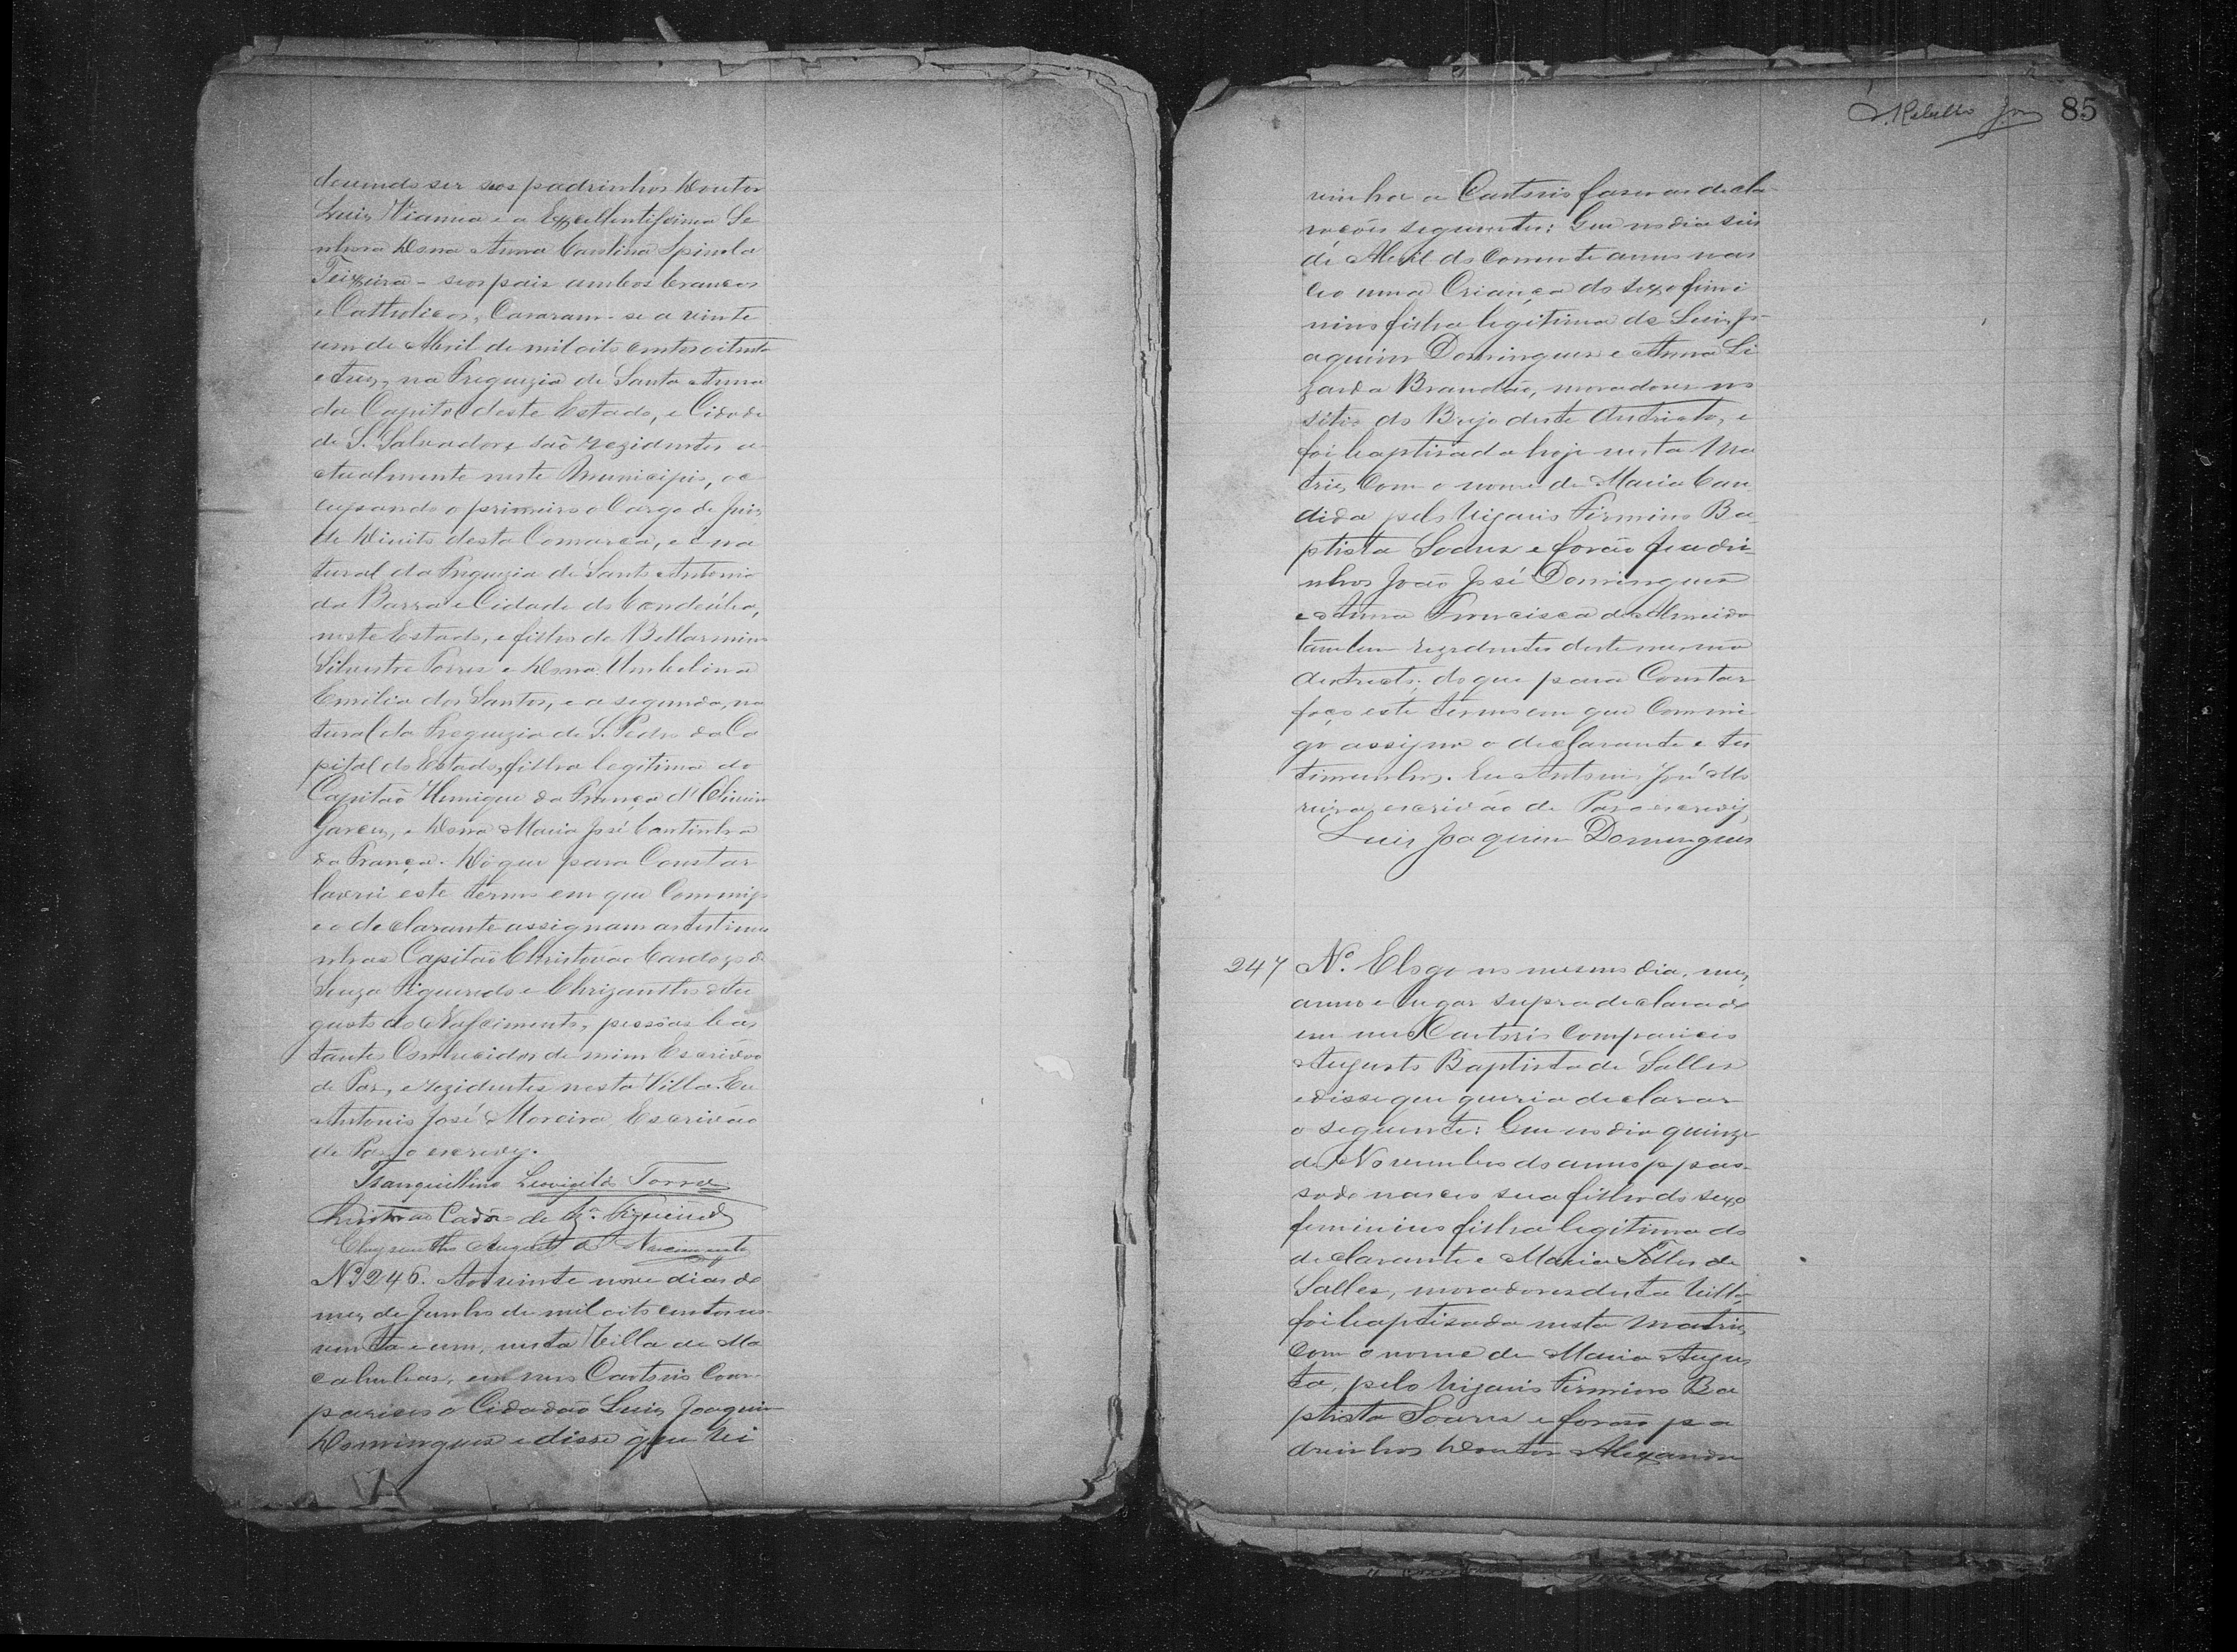 devendo ser seos padrinhos Doutor
Luiz Vianna e a Excellentissima Se
nhora Dona Anna Carolina Spinola
Teixeira - seos pais ambos brancos
e Catholicos, Casaram-se a vinte
um de Abril de mil oito centos oitenta
e tres, na Freguezia de Santa Anna
da Capital deste Estado, e Cidade
de S. Salvador, e são rezidentes a
ctualmente neste Municipio, oc
cupando o primeiro o Cargo de Juiz
de Direito desta Comarca, e é na
tural da Freguezia de Santo Antonio
da Barra e Cidade do Condeúba,
neste Estado, e filho de Bellarmino
Silvestre Torres e Dona Umbelina
Emilia dos Santos, e a segunda, na
tural da Freguezia de S. Pedro da Ca
pital do Estado, filha legitima do
Capitão Henrique da França d'Oliveira
Garcez, e Dona Maria José Coutinho
da França. Do que para Constar
lavrei este termo em que Commigo
e o declarante assignam as testimu
nhas Capitão Christovão Cardozo de
Souza Figueredo e Chrizantho Au
gusto do Nascimento, pessoas bas
tantes Conhecidas de mim Escrivão
de Paz, e rezidentes nesta Villa. Eu
Antonio José Moreira Escrivão
de Paz o escrevy.
Tranquillino Leovigildo Torres
Christovao Cadozo de Sz.ª Figueiredo
Chrysantho Augusto do Nascimento
Nº 246. Aos vinte nove dias do
mez de Junho de mil oito centos no
venta e um, nesta Villa de Ma
cahubas, em meu Cartorio Com
pariceo o Cidadão Luiz Joaquim
Domingues e disse que vi
Rebello Jor 85
vinha a Cartorio faser as decla
rações seguintes: Que no dia seis
de Abril do Corrente anno nas
ceo uma Criança do sexo fimi
nino filha legitima de Luiz Jo
aquim Domingues e Anna Li
zarda Brandão, moradores no
sitio do Brejo deste destricto, e
foi baptisada hoje nesta Ma
triz Com o nome de Maria Can
dida pelo Vigario Firmino Ba
ptista Soares e forão padri
nhos João José Domingues
e Anna Francisca de Almeida
tambem rezidentes deste mesmo
destricto; do que para Constar
faço este termo em que Commi
go assigna o declarante e tes
timunhas. Eu Antonio José Mo
reira escrivão de Paz o escrevy
Luiz Joaquim Domingues
247 Nº. E logo no mesmo dia, mez,
anno e lugar supra declarado
em meu Cartorio Compariceo
Augusto Baptista de Salles
e disse que queria declarar
o seguinte: Que no dia quinze
de Novembro do anno p. pas-
sado nasceo sua filha do sexo
feminino filha legitima do
declarante e Maria Telles de
Salles, moradores desta Villa,
foi baptisada nesta Matriz
Com o nome de Maria Augus
ta, pelo Vigario Firmino Ba
ptista Soares e forão pa
drinhos Doutor Alexandre